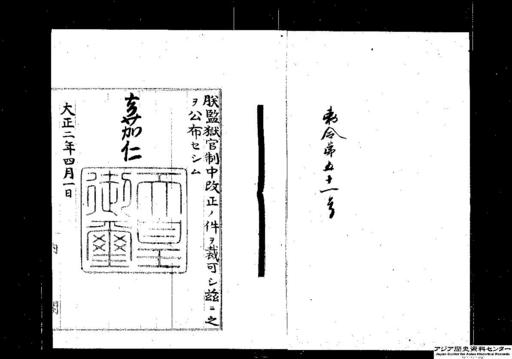 勅令第五十一号
朕監獄官制中改正ノ件ヲ裁可シ茲ニ之
ヲ公布セシム
嘉仁
天皇
御璽
大正二年四月一日
内閣
アジア歴史資料センター
Japan Center for Asian Historical Records